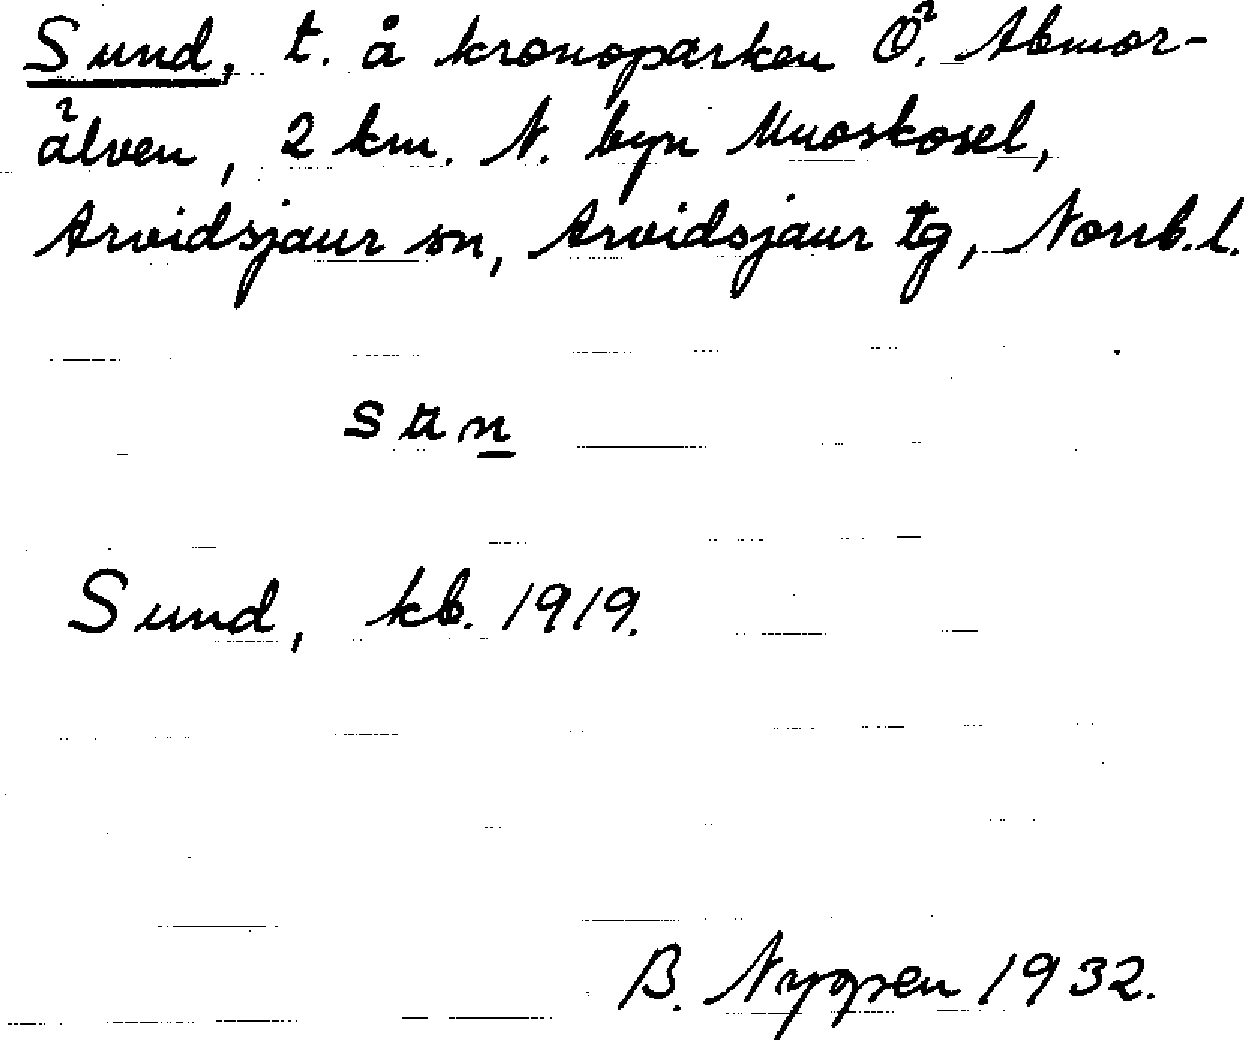 Sund, t. å kronoparken Ö. Abmor-
älven, 2 km. N. byn Muoskosel,
Arvidsjaur sn, Arvidsjaur tg, Norrb.l.
Sund, kb. 1919.
B. 1932.